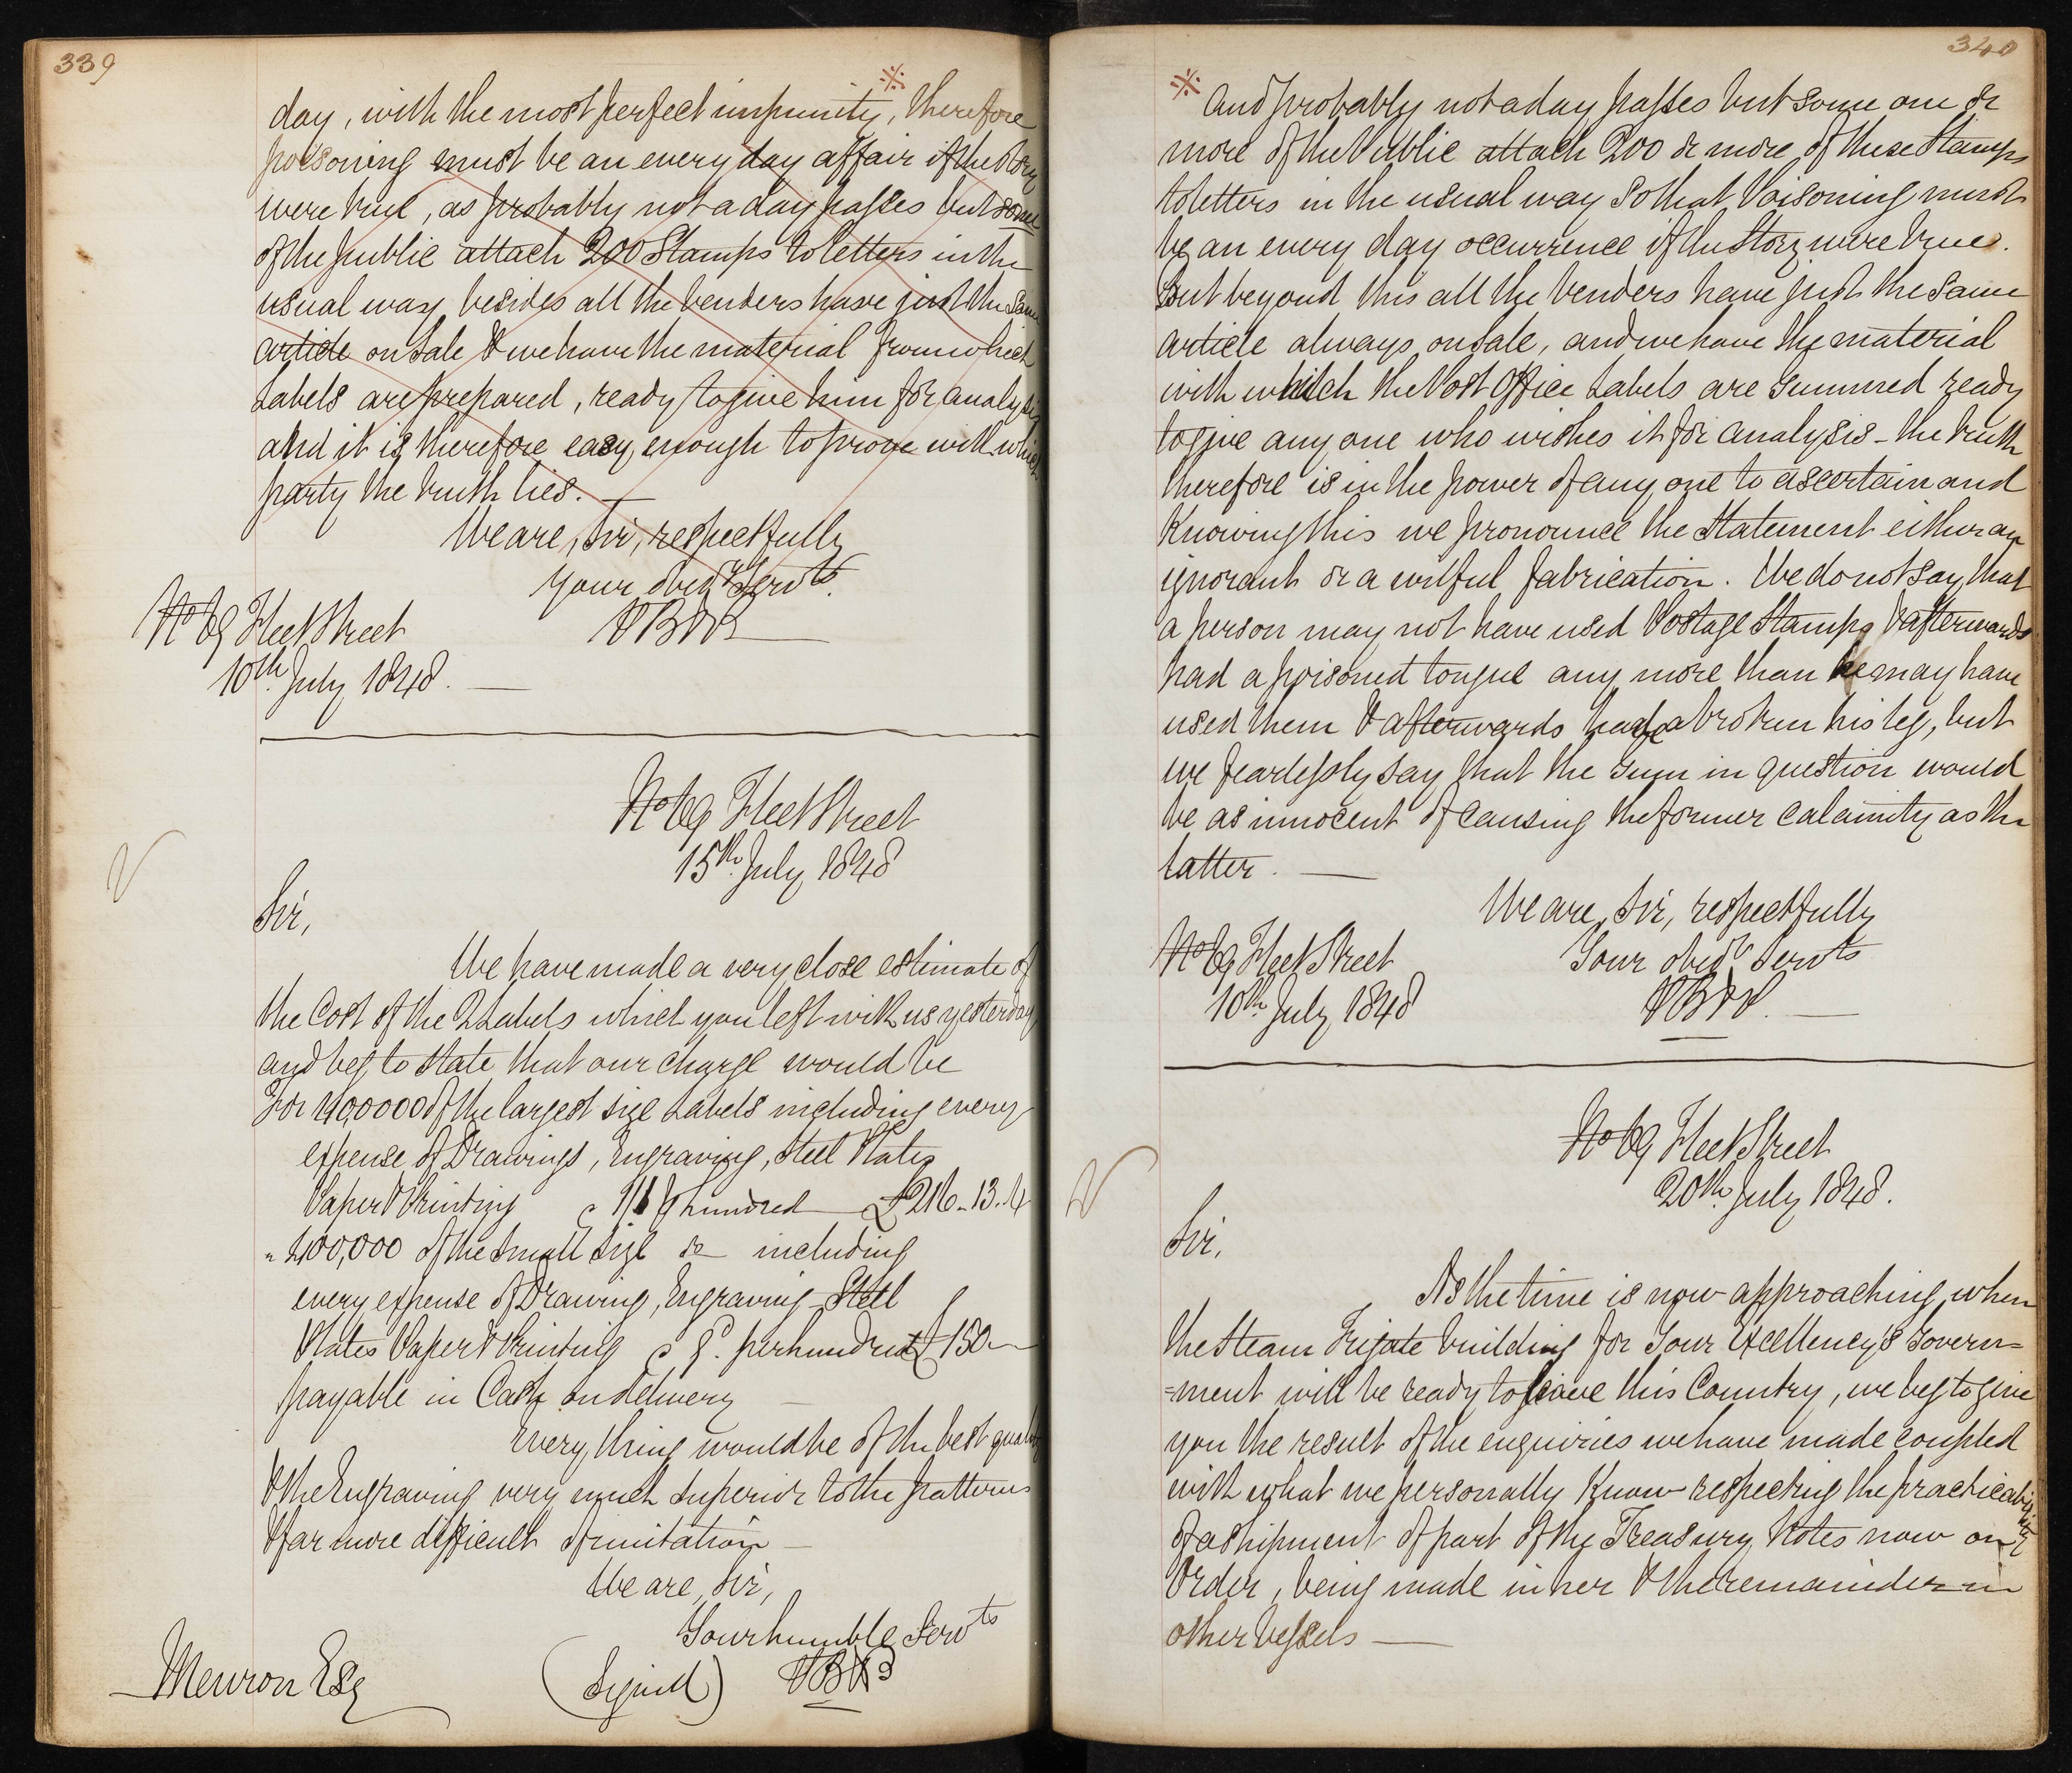 339
day, with the most perfect impunity, ※ therefore
poisoning must be an every day affair if the story
were true, as probably not a day passes but some
of the public attach 200 Stamps to letters in the
usual way besides all the venders have just the same
article on Sale & we have the material from which
Labels are prepared, ready to give him for analysis
and it is therefore easy enough to prove with which
party the truth lies. —
We are, Sir, respectfully
Your obedt. Servts.
PB&P
No 69 Fleet Street
10th. July 1848. —
No 69 Fleet Street
15th. July 1848
Sir,
We have made a very close estimate of
the Cost of the 2 Labels which you left with us yesterday
and beg to state that our charge would be
For 400000 of the largest size Labels including every
expense of Drawings, Engraving, Steel Plates
Paper & Printing @ 1/1 ⅌ hundred — £216-13.4
" 400,000 of the Small Size do including
every expense of Drawing, Engraving Steel
Plates Paper & Printing @ 9d. per hundred £150—
payable in Cash on delivery —
Every thing would be of the best quality
& the Engraving very much superior to the patterns
& far more difficult of imitation —
We are, Sir,
Your humble Servts
(Signed) PB&P
— Meuron Esq
340
※ And probably not a day passes but some one or
more of the Public attach 200 or more of these Stamps
to letters in the usual way so that Poisoning must
be an every day occurrence if the Story were true.
But beyond this all the Venders have just the same
article always on Sale, and we have the material
with which the Post Office Labels are gummed ready
to give any one who wishes it for analysis – the truth
therefore is in the power of any one to ascertain and
Knowing this we pronounce the Statement either an
ignorant or a wilful fabrication. We do not say that
a person may not have used Postage Stamps & afterwards
had a poisoned tongue any more than he may have
used them & afterwards have broken his leg, but
we fearlessly say that the Gum in question would
be as innocent of causing the former calamity as the
latter. —
We are, Sir, respectfully
Your obedt Servts
PB&P. —
No 69 Fleet Street
10th. July 1848
No 69 Fleet Street
20th. July 1848.
Sir,
As the time is now approaching when
the Steam Frigate building for Your Excellency's Govern=
=ment will be ready to leave this Country, we beg to give
you the result of the enquiries we have made coupled
with what we personally Know respecting the practicability
of a shipment of part of the Treasury Notes now on
Order, being made in her & the remainder in
other Vessels —